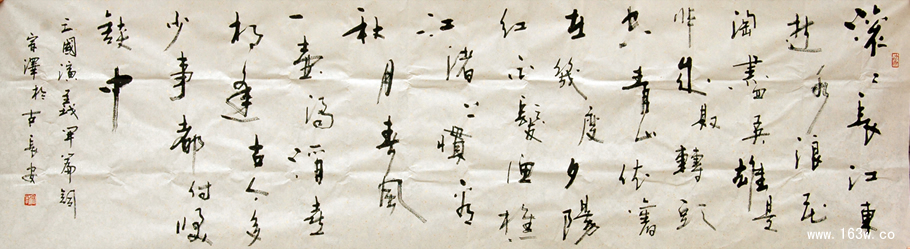 滚々長江東
逝水浪花
淘盡英雄是
非成敗轉頭
空青山依舊
在幾度夕陽
紅白髮漁樵
江渚上慣看
秋月春風
一壺濁酒喜
相逢古今多
少事都付笑
談中
三國演義開篇詞
澤於古長安
www.163w.co